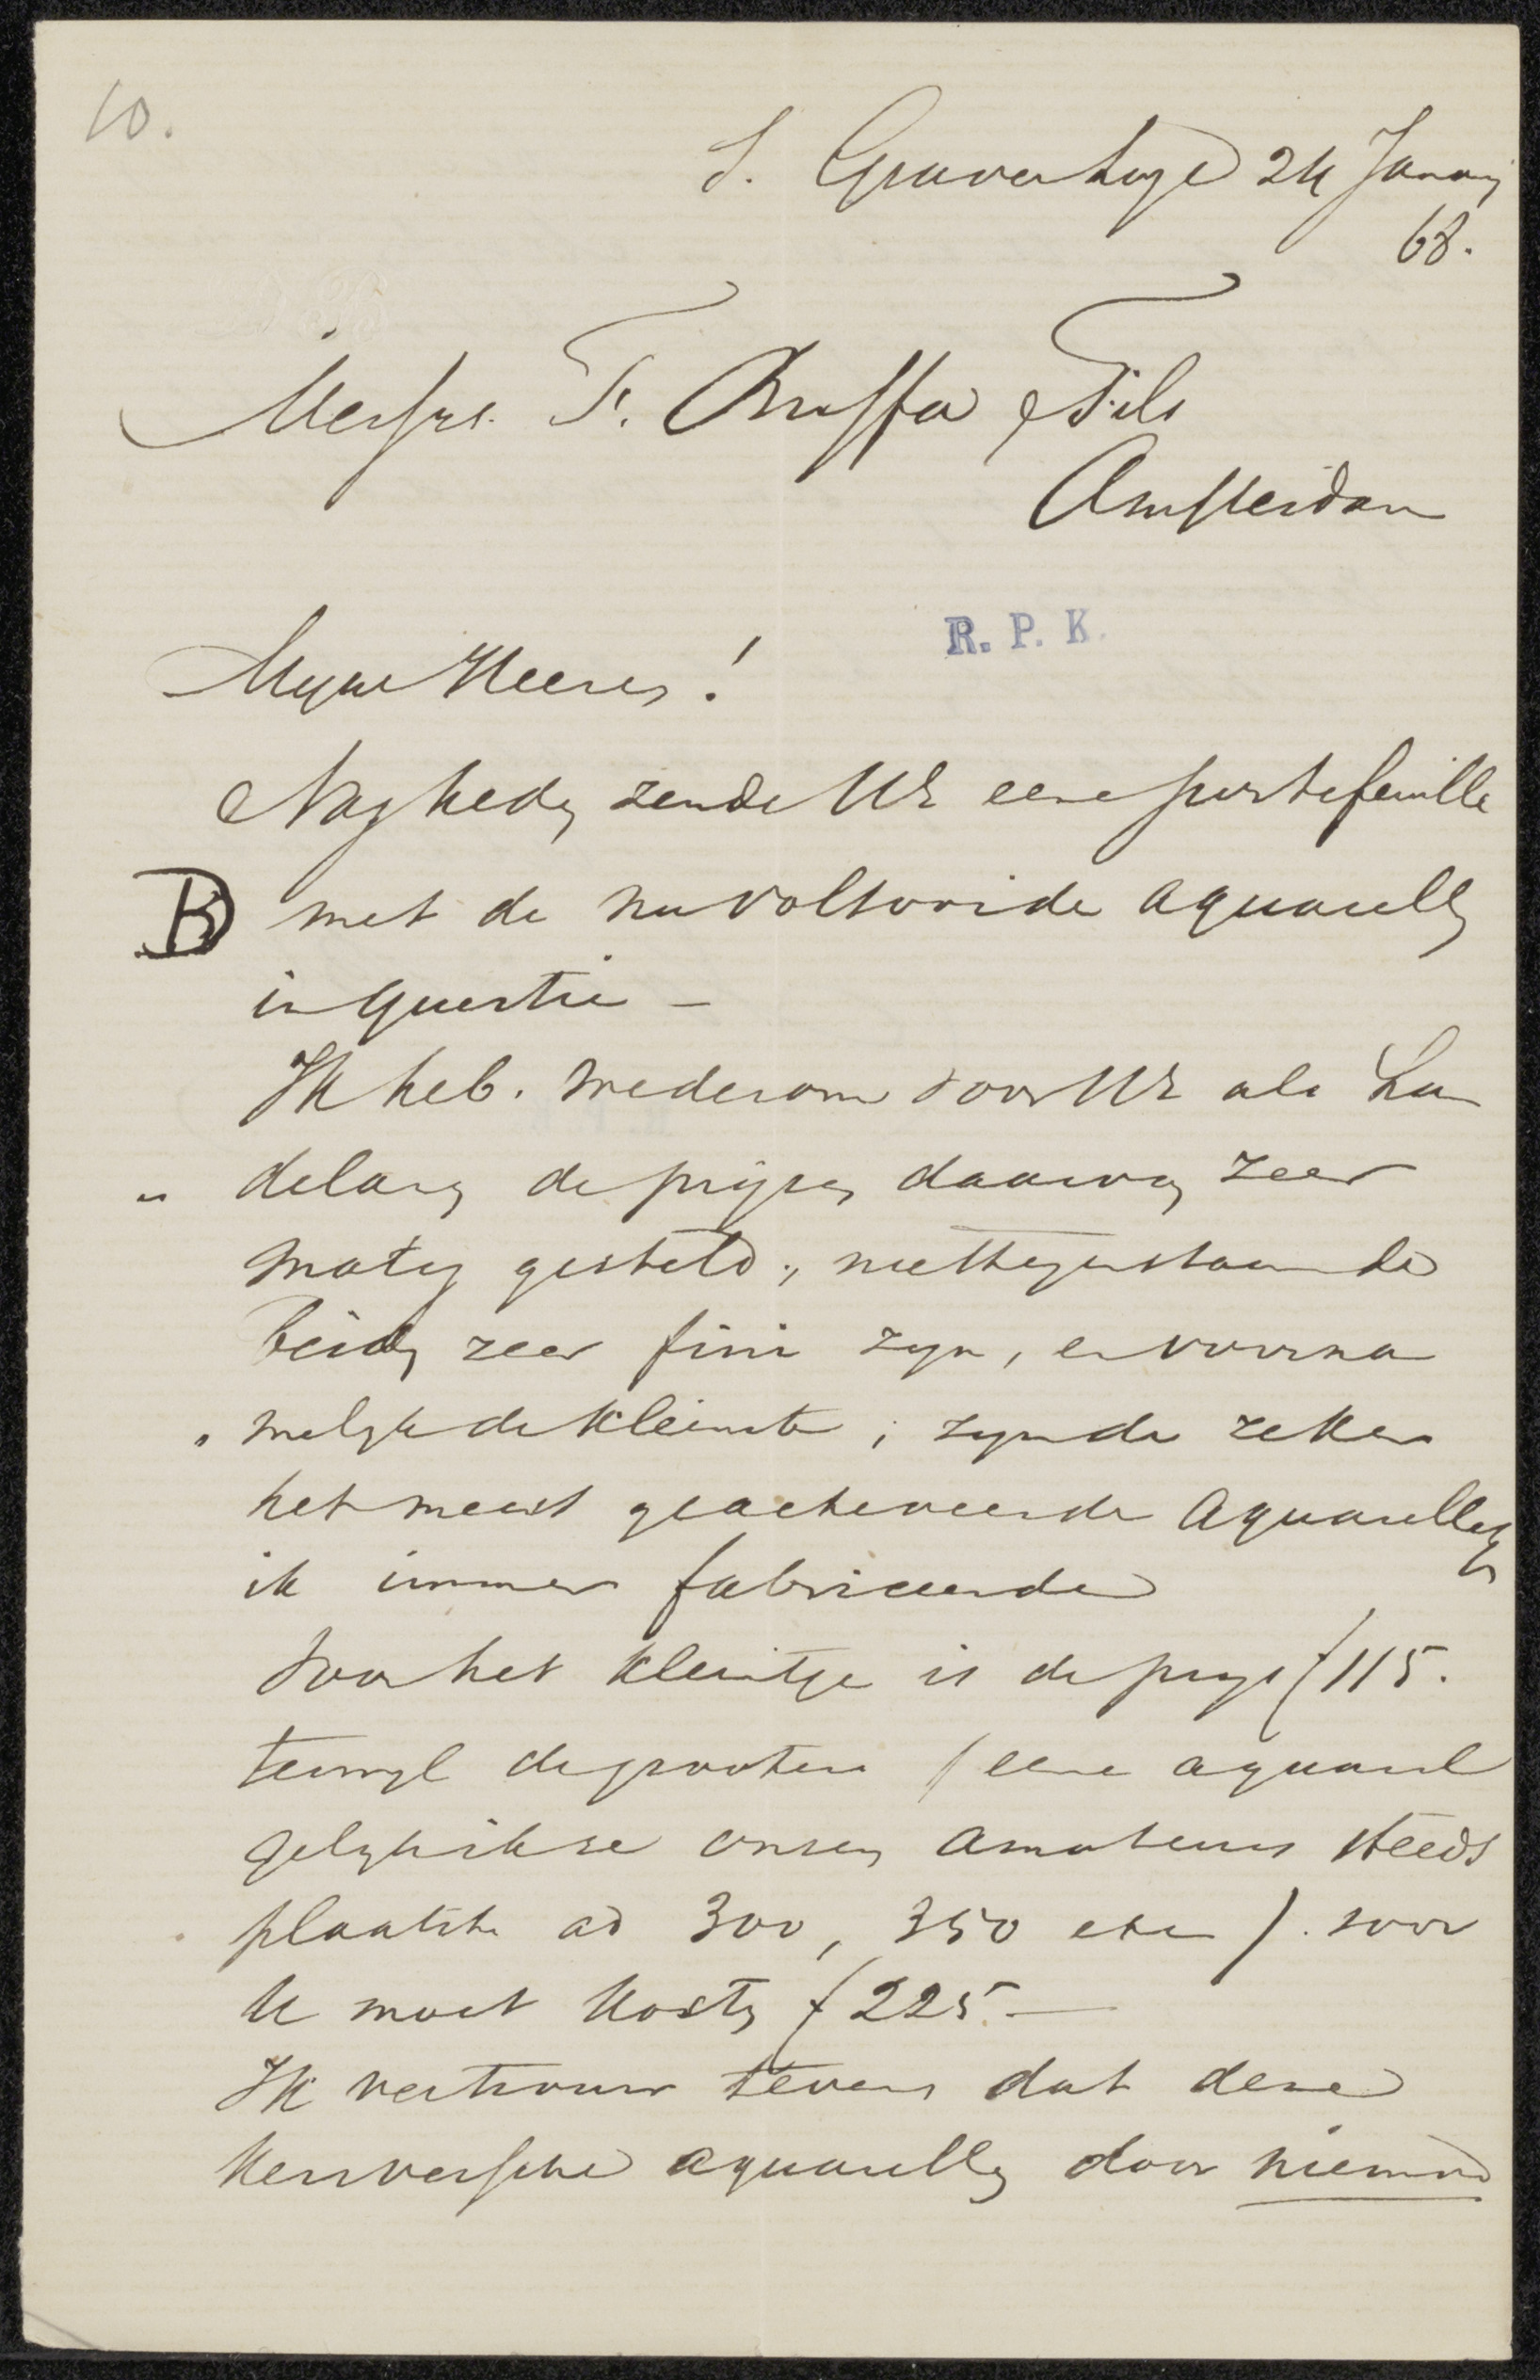 10.
S. Gravenhage 24 Januarij
68.
Messrs. F. Buffa & Fils
Amsterdam
R. P. K.
Myne Heeren!
Nog heden zende UE eene portefeuille
B met de nu voltooide aquarellen
in questie –
Ik heb. wederom voor UE als han
„ delaren de prijzen daarvan zeer
matig gesteld, niettegenstaande
beiden zeer fini zyn, en voorna
„ melyk de kleinste, zynde zeker
het meest geacheveerde aquarellen
ik immer fabriceerde
Voor het kleintje is de prys f 115.
terwyl de grootere (eene aquarel
gelyk ik se onsen amateurs steeds
plaatste ad 300, 350 etc ). voor
U moet kosten f 225.—
Ik vertrouw tevens dat deze
kersversche aquarellen door niemand